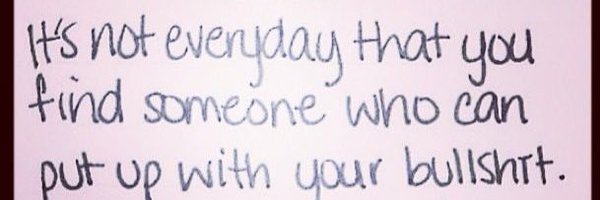 It's not everyday that you
find someone who can
put up with your bullshit.